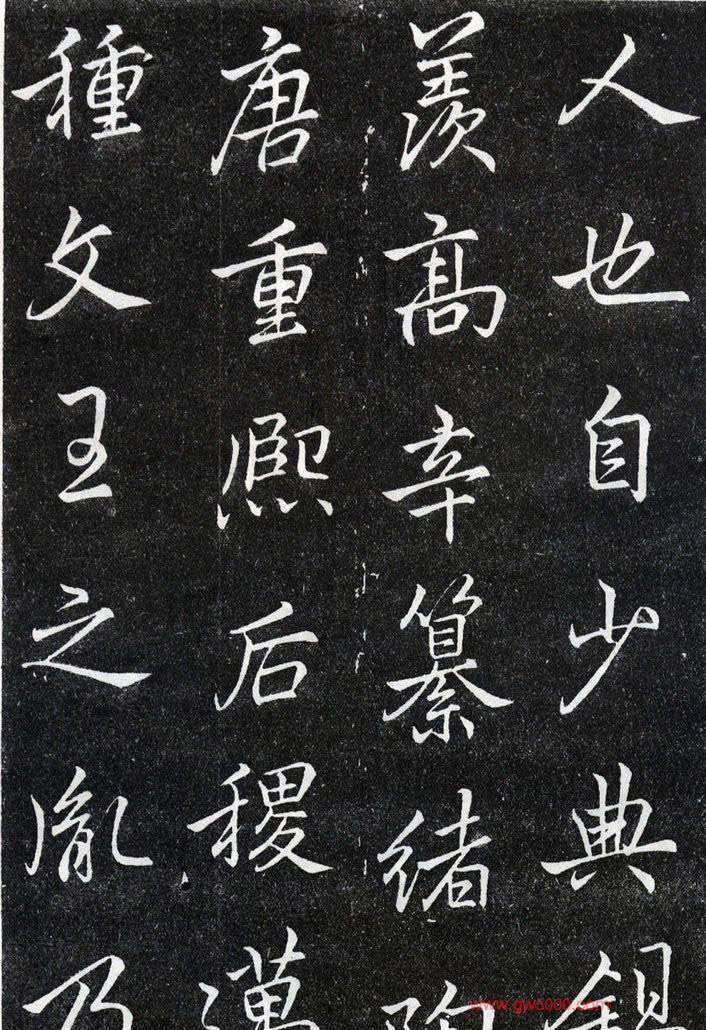 人也自少典錫
羨高辛纂緒陶
唐重熙后稷邁
種文王之胤乃
www.gw5000.com